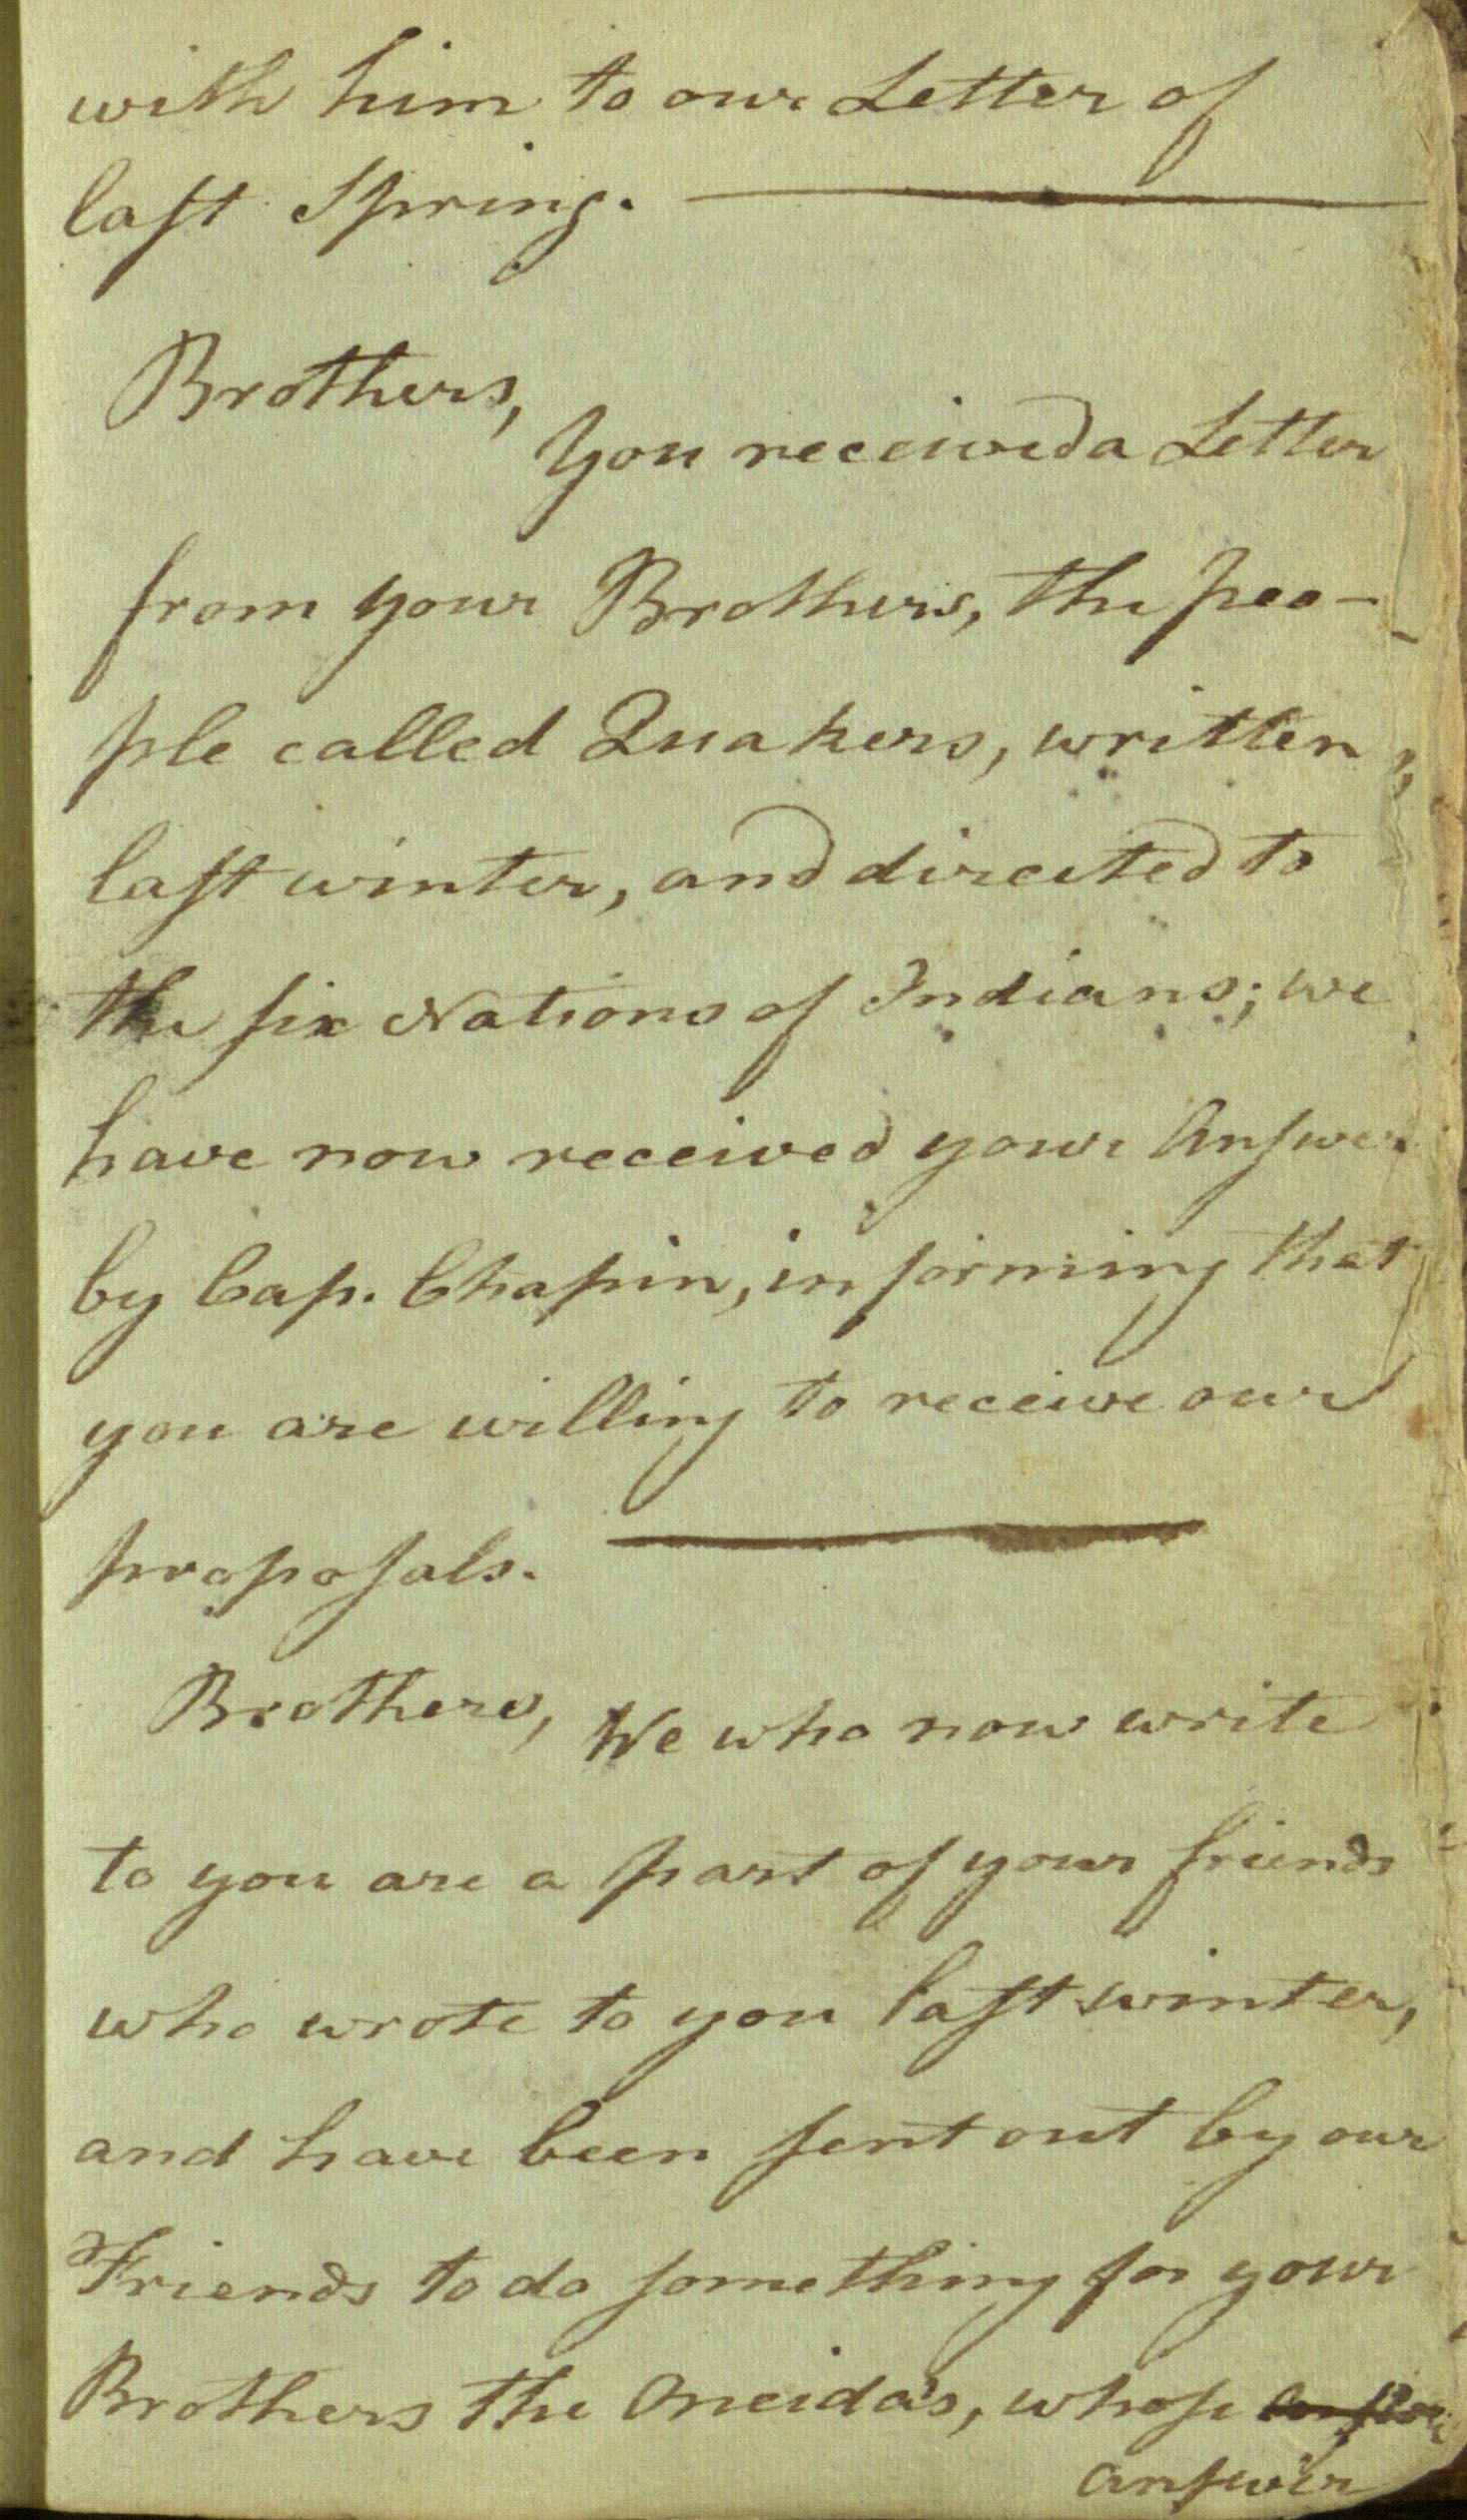 with him to our Letter of
last Spring. ———
Brothers,
You received a Letter
from your Brothers, the peo-
ple called Quakers, written
last winter, and directed to
the six Nations of Indians; we
have now received your Answer
by Cap. Chapin, informing that
you are willing to receive our
proposals. ———
Brothers, We who now write
to you are a part of your friends
who wrote to you last winter,
and have been sent out by our
Friends to do something for your
Brothers the Oneida's, whose
answer